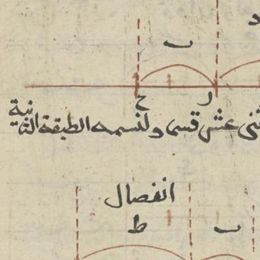 د
ب
ح ر
ثنى عشر قسما ولنسمه الطبقة الثانية
انفصال
ط ب